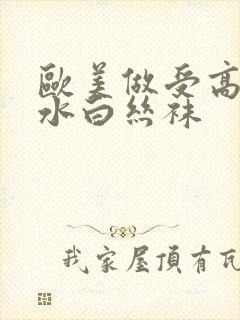 歐美做受高
水白絲袜
我家屋頂有瓦